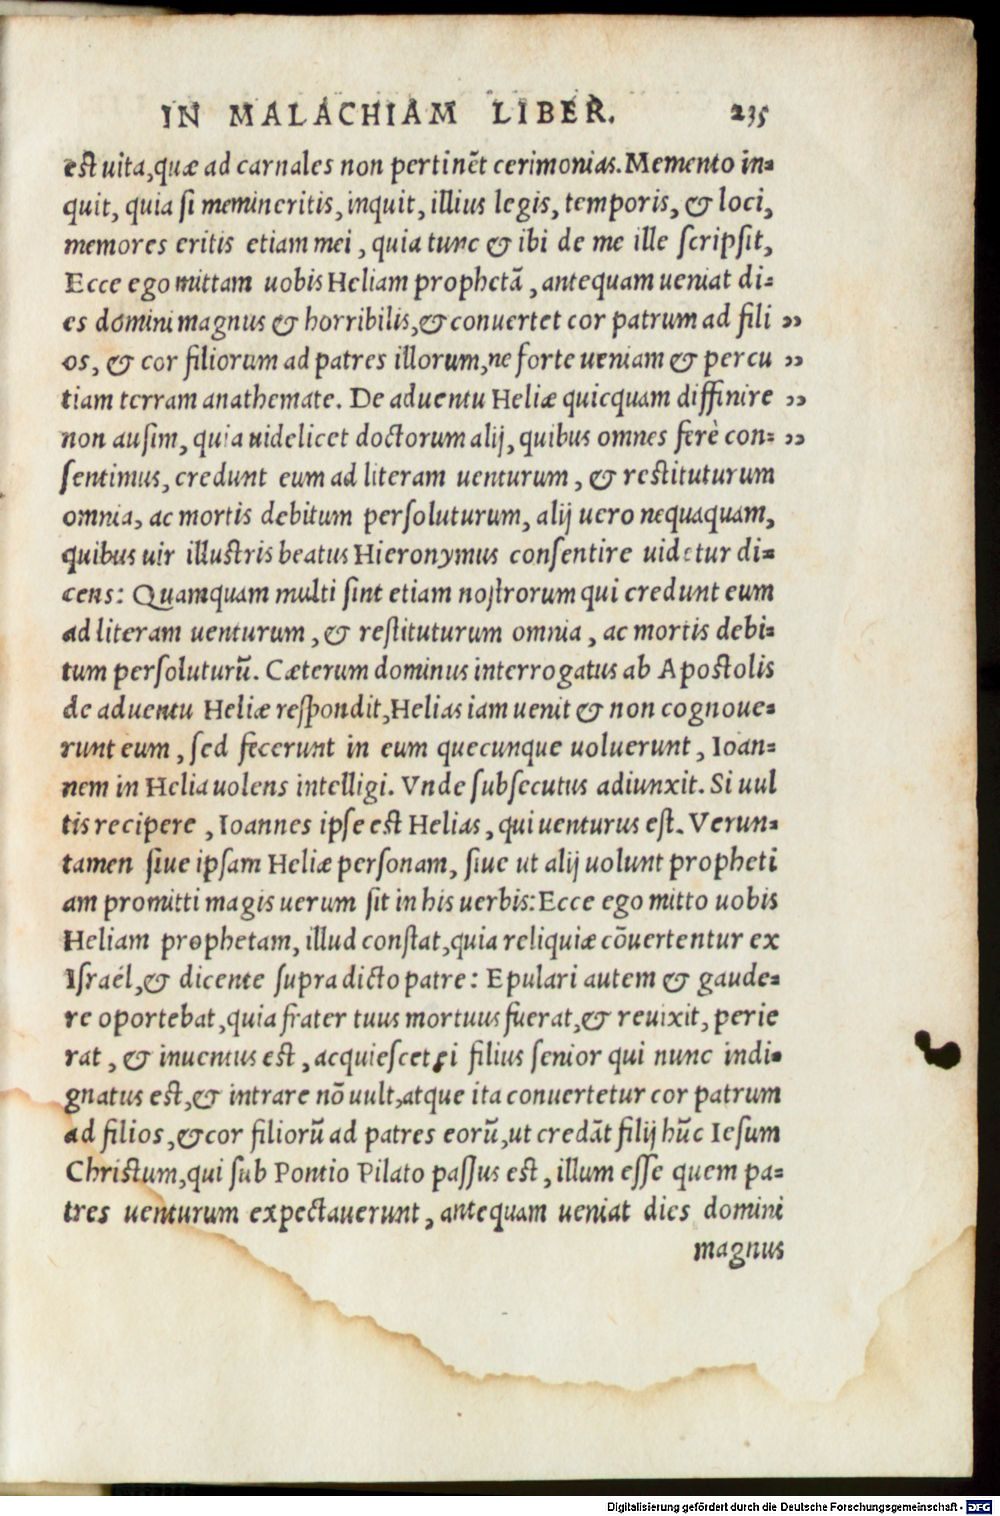 IN MALACHIAM LIBER. 235
est uita, quæ ad carnales non pertinẽt cerimonias. Memento in-
quit, quia si memineritis, inquit, illius legis, temporis, & loci,
memores eritis etiam mei, quia tunc & ibi de me ille scripsit,
Ecce ego mittam uobis Heliam prophetã, antequam ueniat di-
es domini magnus & horribilis, & conuertet cor patrum ad fili ,,
os, & cor filiorum ad patres illorum, ne forte ueniam & percu ,,
tiam terram anathemate. De aduentu Heliæ quicquam diffinire ,,
non ausim, quia uidelicet doctorum alij, quibus omnes ferè con- ,,
sentimus, credunt eum ad literam uenturum, & restituturum
omnia, ac mortis debitum persoluturum, alij uero nequaquam,
quibus uir illustris beatus Hieronymus consentire uidetur di-
cens: Quamquam multi sint etiam nostrorum qui credunt eum
ad literam uenturum, & restituturum omnia, ac mortis debi-
tum persoluturũ. Cæterum dominus interrogatus ab Apostolis
de aduentu Heliæ respondit, Helias iam uenit & non cognoue-
runt eum, sed fecerunt in eum quecunque uoluerunt, Ioan-
nem in Helia uolens intelligi. Vnde subsecutus adiunxit. Si uul
tis recipere, Ioannes ipse est Helias, qui uenturus est. Verun-
tamen siue ipsam Heliæ personam, siue ut alij uolunt propheti
am promitti magis uerum sit in his uerbis: Ecce ego mitto uobis
Heliam prophetam, illud constat, quia reliquiæ cõuertentur ex
Israël, & dicente supra dicto patre: Epulari autem & gaude-
re oportebat, quia frater tuus mortuus fuerat, & reuixit, perie
rat, & inuentus est, acquiescet, i filius senior qui nunc indi-
gnatus est, & intrare nõ uult, atque ita conuertetur cor patrum
ad filios, & cor filiorũ ad patres eorũ, ut credãt filij hũc Iesum
Christum, qui sub Pontio Pilato passus est, illum esse quem pa-
tres uenturum expectauerunt, antequam ueniat dies domini
magnus
Digitalisierung gefördert durch die Deutsche Forschungsgemeinschaft - DFG